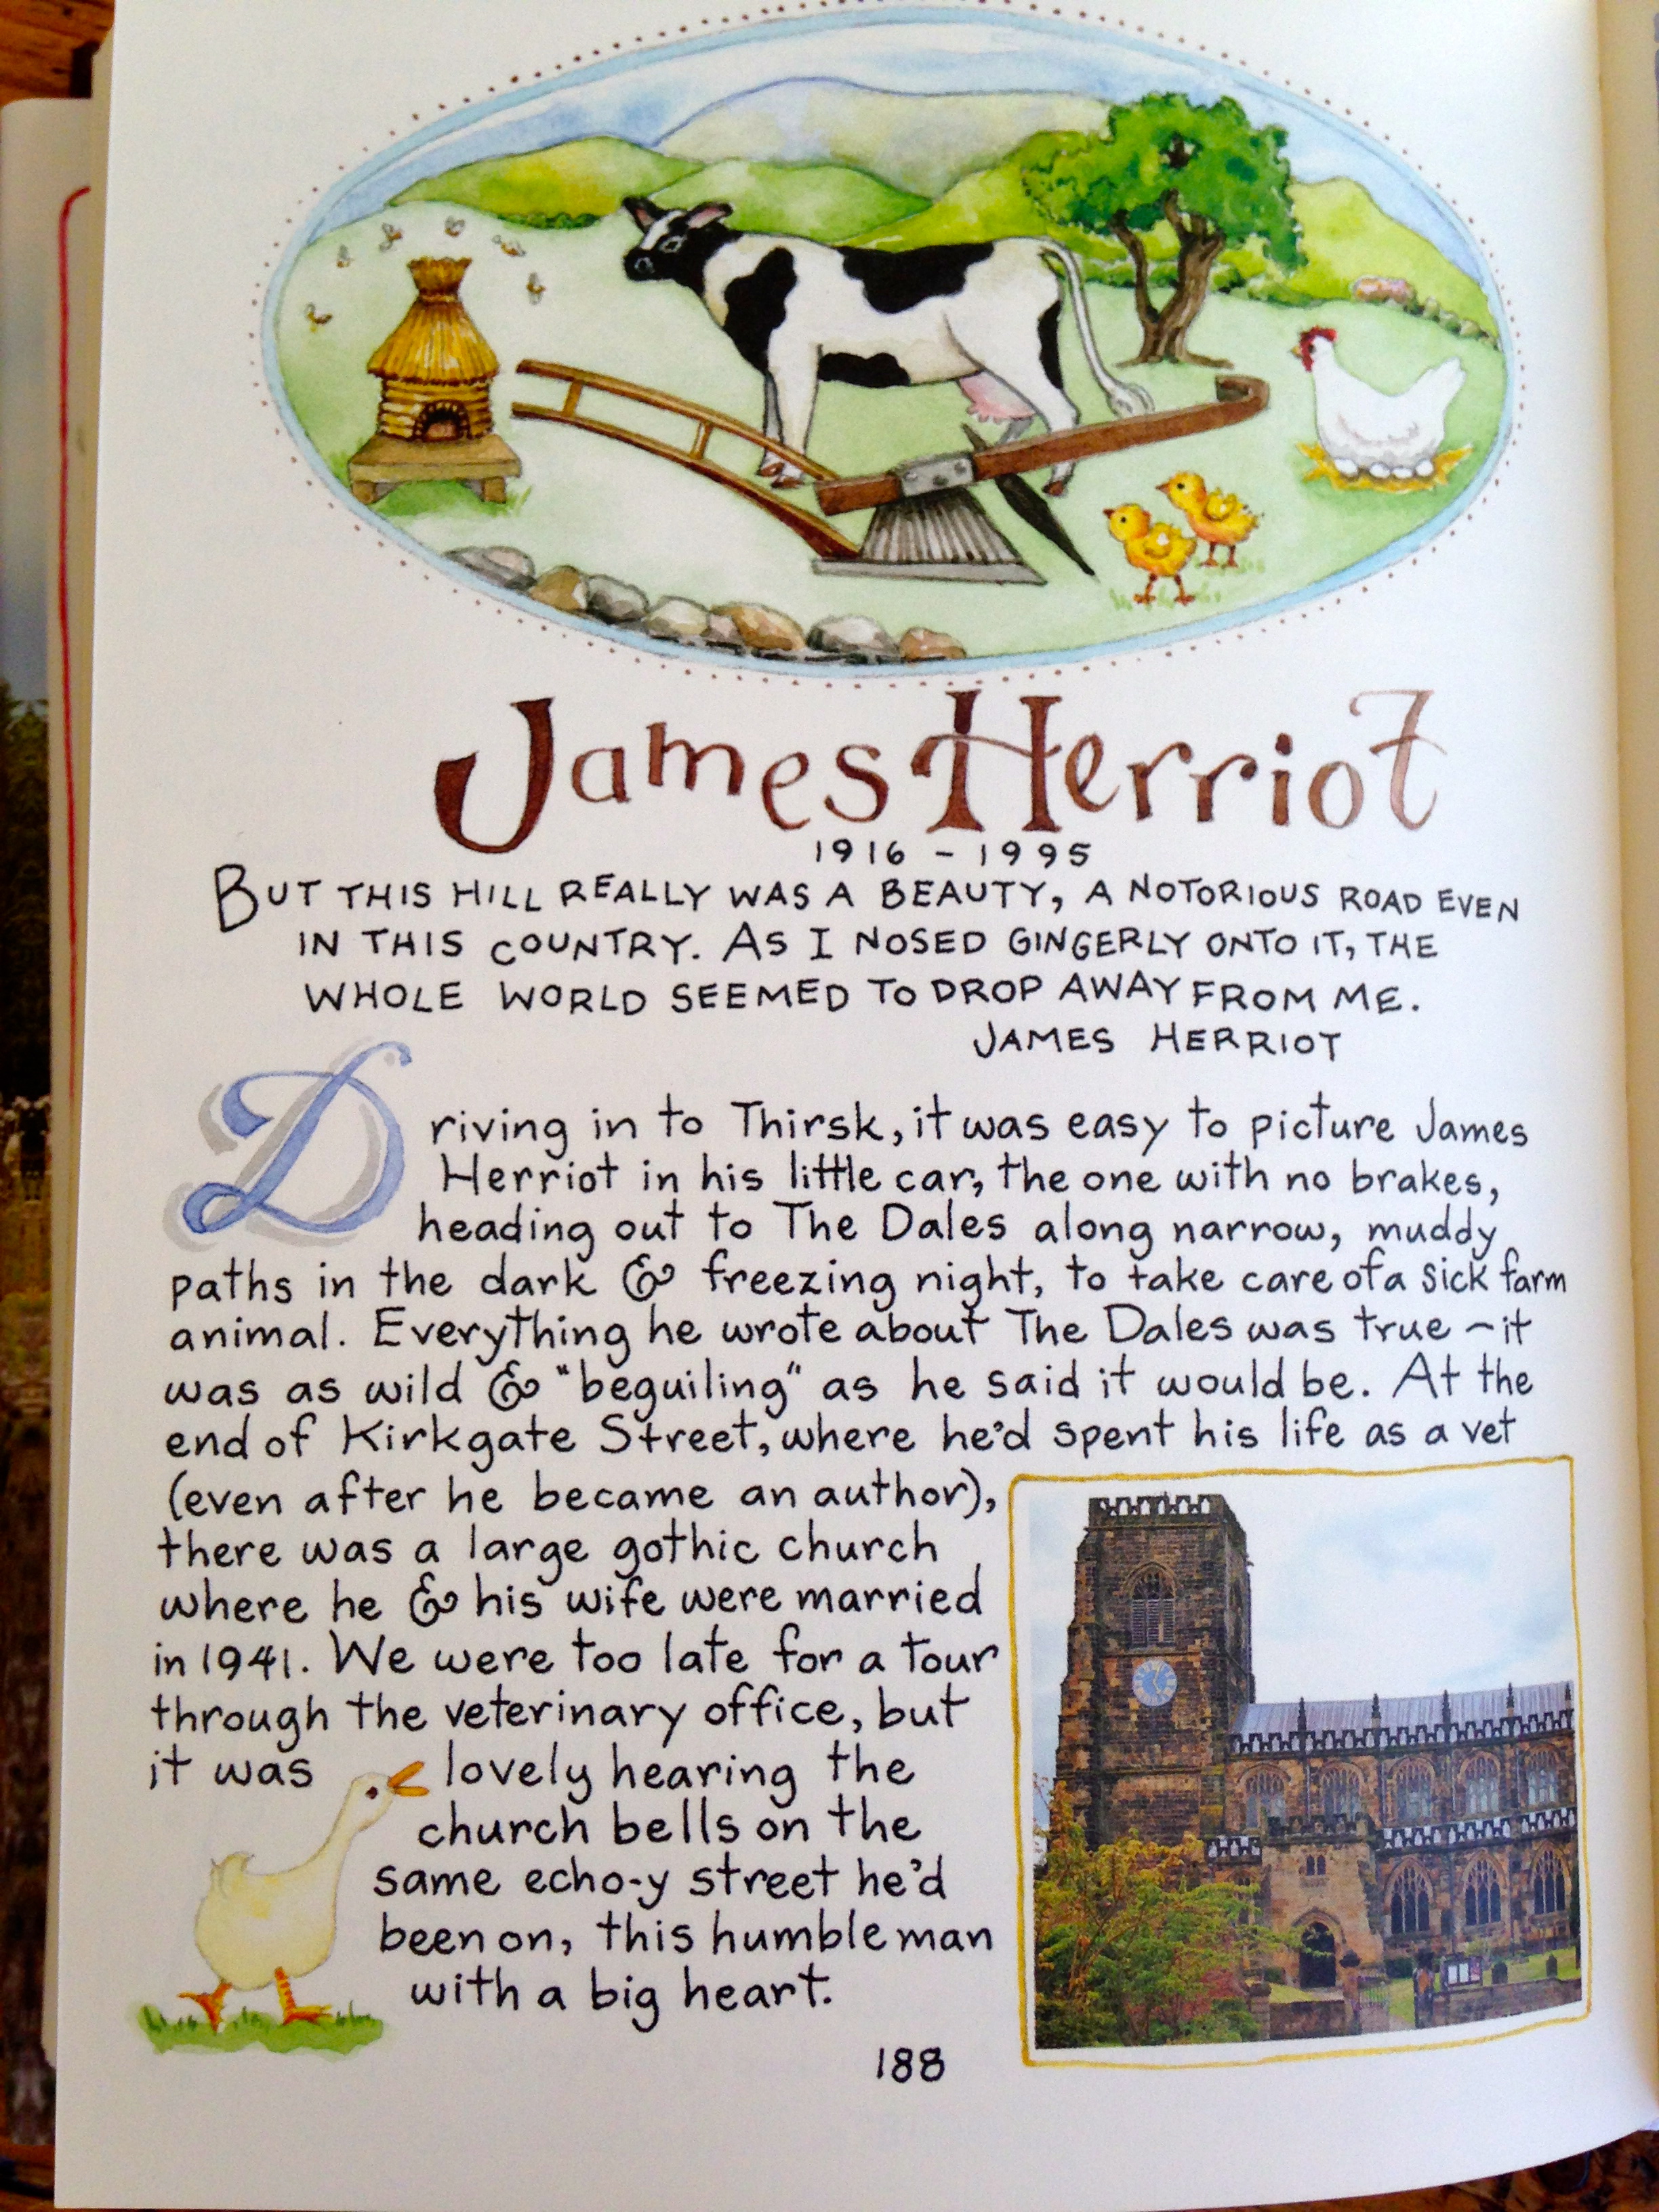 James Herriot
1916 - 1995
BUT THIS HILL REALLY WAS A BEAUTY, A NOTORIOUS ROAD EVEN
IN THIS COUNTRY. AS I NOSED GINGERLY ONTO IT, THE
WHOLE WORLD SEEMED TO DROP AWAY FROM ME.
JAMES HERRIOT
Driving in to Thirsk, it was easy to picture James
Herriot in his little car, the one with no brakes,
heading out to The Dales along narrow, muddy
paths in the dark & freezing night, to take care of a sick farm
animal. Everything he wrote about The Dales was true ~ it
was as wild & "beguiling" as he said it would be. At the
end of Kirkgate Street, where he'd spent his life as a vet
(even after he became an author),
there was a large gothic church
where he & his wife were married
in 1941. We were too late for a tour
through the veterinary office, but
it was lovely hearing the
church bells on the
same echo-y street he'd
been on, this humble man
with a big heart.
188